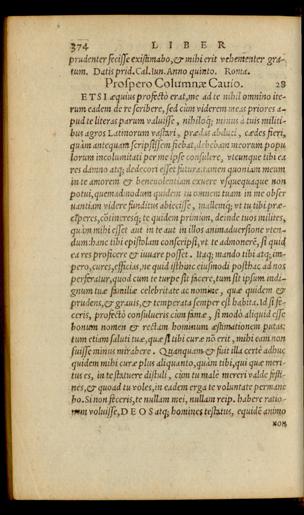 374 LIBER
prudenter fecisse existimabo, & mihi erit vehementer gra-
tum. Datis prid. Cal. Iun. Anno quinto. Romæ.
Prospero Columnæ Cauio. 28
ETSI æquius profectò erat, me ad te nihil omnino ite-
rum eadem de re scribere, sed cum viderem meas priores a-
pud te literas parum valuisse, nihiloq; minus à tuis militi-
bus agros Latinorum vastari, prædas abduci, cædes fieri,
quàm antequam scripsissem fiebat, debebam meorum popu
lorum incolumitati per me ipse consulere, vtcunque tibi ea
res damno atq; dedecori esset futura. tamen quoniam meum
in te amorem & beneuolentiam exuere vsquequaque non
potui, quemadmodum quidem tu omnem tuam in me obser
uantiam videre funditus abiecisse, mallemq; vt tu tibi præ-
esses, te quidem primum, deinde tuos milites,
quàm mihi esset aut in te aut in illos animaduersione vten-
dum: hanc tibi epistolam conscripsi, vt te admonerē, si quid
ea res proficere & iuuare posset. Itaq; mando tibi atq; im-
pero, cures, efficias, ne quid isthinc eiusmodi posthac ad nos
perferatur, quod cum te turpe sit facere, tum sit ipsum indi-
gnum tuæ familiæ celebritate ac nomine, quæ quidem &
prudens, & grauis, & temperata semper est habita. Id si fe-
ceris, profectò consulueris cùm famæ, si modò aliquid esse
bonum nomen & rectam hominum æstimationem putas:
tum etiam saluti tuæ, quæ si tibi curæ nō erit, mihi eam non
fuisse minus mirabere. Quanquam & fuit illa certè adhuc
quidem mihi curæ plus aliquanto, quàm tibi, qui quæ meri-
tus es, in te statuere distuli, cùm tu malè mereri valde festi-
nes, & quoad tu voles, in eadem erga te voluntate permane
bo. Si non feceris, te nullam mei, nullam reip. habere ratio-
nem voluisse, DEOS atq; homines testatus, equidē animo
non